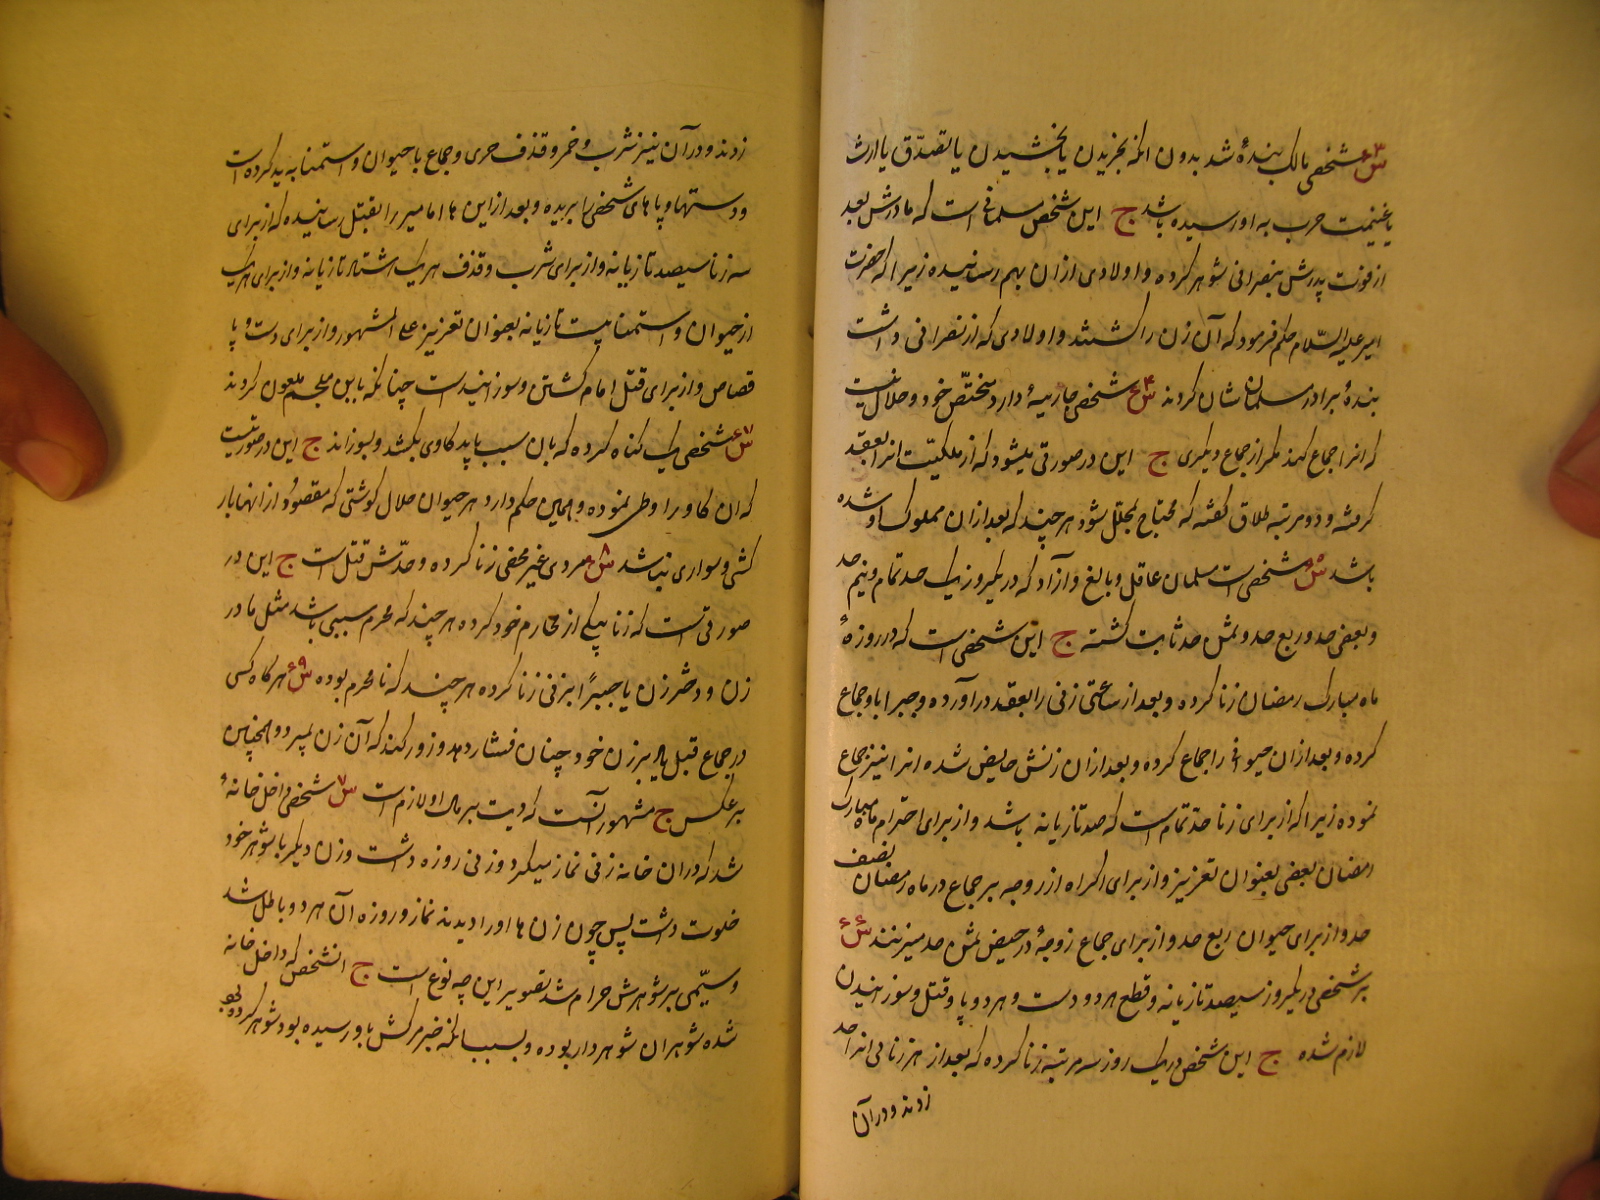 س۴۳ شخصی مالک بندهٔ شد بدون انکه بخریدن یا بخشیدن یا تصدّق یا ارث
یا غنیمت حرب به او رسیده باشد ج این شخص مسلمانی است که مادرش بعد
از فوت پدرش بنصرانی شوهر کرده و اولادی ازان بهم رسانیده زیرا که حضرت
امیر علیه السّلام حکم فرمود که آن زن را کشتند و اولادی که از نصرانی داشت
بندهٔ برادر مسلمانشان کردند س۴۴ شخصی جاریهٔ دارد مختصّ خود و حلال نیست
که انرا جماع کند مکر از جماع دیکری ج این در صورتی میشود که از ملکیّت انرا بعقد
کرفته و دو مرتبه طلاق کفته که محتاج بمحلّل شود هر چند که بعد ازان مملوک او شده
باشد س۴۵ شخصیست مسلمان عاقل و بالغ و آزاد که در یکروز یک حد تمام و نیم حد
و بعض حد و ربع حد و ثمن حد ثابت کشته ج این شخصی است که در روزهٔ
ماه مبارک رمضان زنا کرده و بعد از ساعتی زنی را بعقد در آورده و جبرا با و جماع
کرده و بعد ازان حیوانی را جماع کرده و بعد ازان زنش حایض شده انرا نیز جماع
نموده زیرا که از برای زنا حدّ تمام است که صد تازیانه باشد و از برای احترام ماه مبارک
رمضان بعضی بعنوان تعزیر و از برای اکراه از زوجه بر جماع در ماه رمضان نصف
حد و از برای حیوان ربع حد و از برای جماع زوجهٔ در حیض ثمن حد میزنند س۴۶
بر شخصی در یکروز سیصد تازیانه و قطع هر دو دست و هر دو پا و قتل و سوزانیدن
لازم شده ج این شخص در یک روز سه مرتبه زنا کرده که بعد از هر زنائی انرا حد
زدند و در آن
زدند و در آن نیز شرب خمر و قذف حری و جماع با حیوان و استمنا به ید کرده است
و دستها و پاهای شخصی را بریده و بعد از این ها امامی را بقتل رسانیده که از برای
سه زنا سیصد تازیانه و از برای شرب و قذف هر یک هشتاد تازیانه و از برای هر یک
از حیوان و استمنا بیست تازیانه بعنوان تعزیر علی المشهور و از برای دست و پا
قصاص و از برای قتل امام کشتن و سوزانیدنست چنانکه با ابن ملجم ملعون کردند
س۴۷ شخصی یک کناه کرده که بان سبب باید کاوی بکشند و بسوزانند ج این در صورتیست
که ان کاو را وطی نموده و همین حکم دارد هر حیوان حلال کوشتی که مقصود از انها بار
کشی و سواری نباشد س۴۸ مردی غیر محصن زنا کرده و حدّش قتل است ج این در
صورتی است که زنا بیکی از محارم خود کرده هر چند که محرم سببی باشد مثل مادر
زن و دختر زن یا جبراً بزنی زنا کرده هر چند که نا محرم بوده س۴۹ هرکاه کسی
در جماع قبل یا دبر زن خود چنان فشار دهد و زور کند که آن زن بمیرد و همچنین
بر عکس ج مشهور آنست که دیت بر مال او لازم است س۷ شخصی داخل خانهٔ
شد که دران خانه زنی نماز میکرد و زنی روزه داشت و زن دیکر با شوهر خود
خلوت داشت پس چون زن ها او را دیدند نماز و روزه آن هر دو باطل شد
و سیّمی بر شوهرش حرام شد تصویر این چه نوع است ج انشخص که داخل خانه
شده شوهر ان شوهردار بوده و بسبب انکه خبر مرکش باو رسیده بود شوهر کرده بود